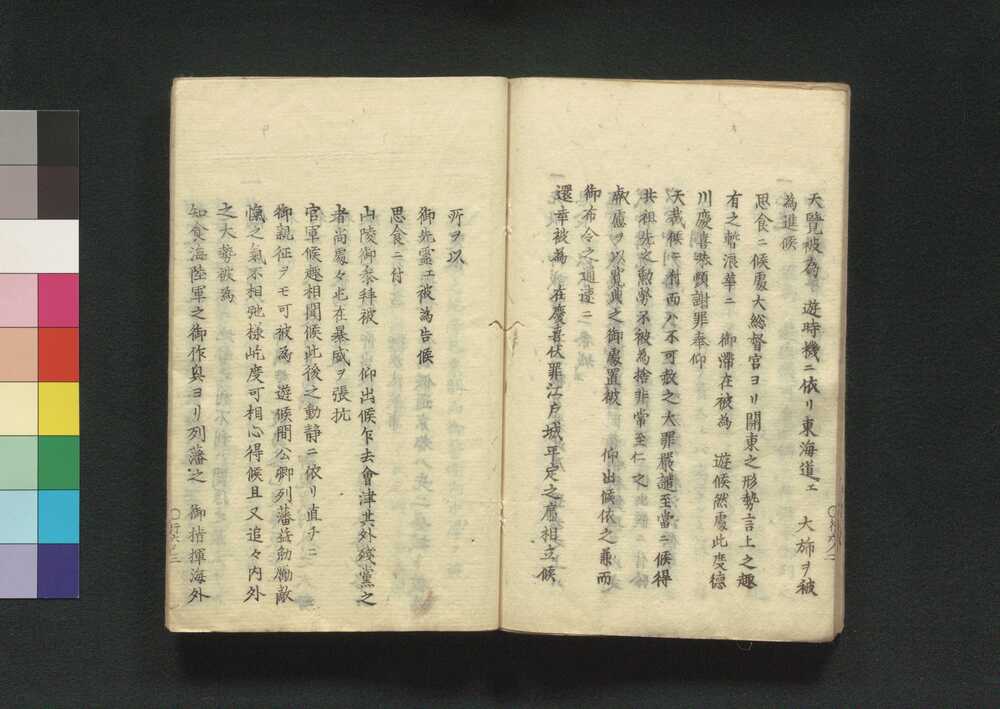 天覧被為 遊時機ニ依リ東海道エ 大旆ヲ被
為進候
思食ニ候處大総督宮ヨリ関東之形勢言上之趣
有之暫浪華ニ 御滞在被為 遊候然處此度徳
川慶喜恭順謝罪奉仰
天裁候ニ付而ハ不可赦之大罪嚴譴至當ニ候得
共祖先之勲勞不被為捨非常至仁之
叡慮ヲ以寛典之御處置被 仰出候依之兼而
御布令之通速ニ
還幸被為 在慶喜伏罪江戸城平定之廉相立候
所ヲ以
御先霊エ被為告候
思食ニ付
山陵御参拝被 仰出候乍去會津其外残黨之
者尚處々屯在暴威ヲ張抗
官軍候趣相聞候此後之動静ニ依リ直チニ
御親征ヲモ可被為 遊候間公卿列藩益勤勵敵
愾之氣不相弛様屹度可相心得候且又追々内外
之大勢被為
知食海陸軍之御作興ヨリ列藩之 御指揮海外